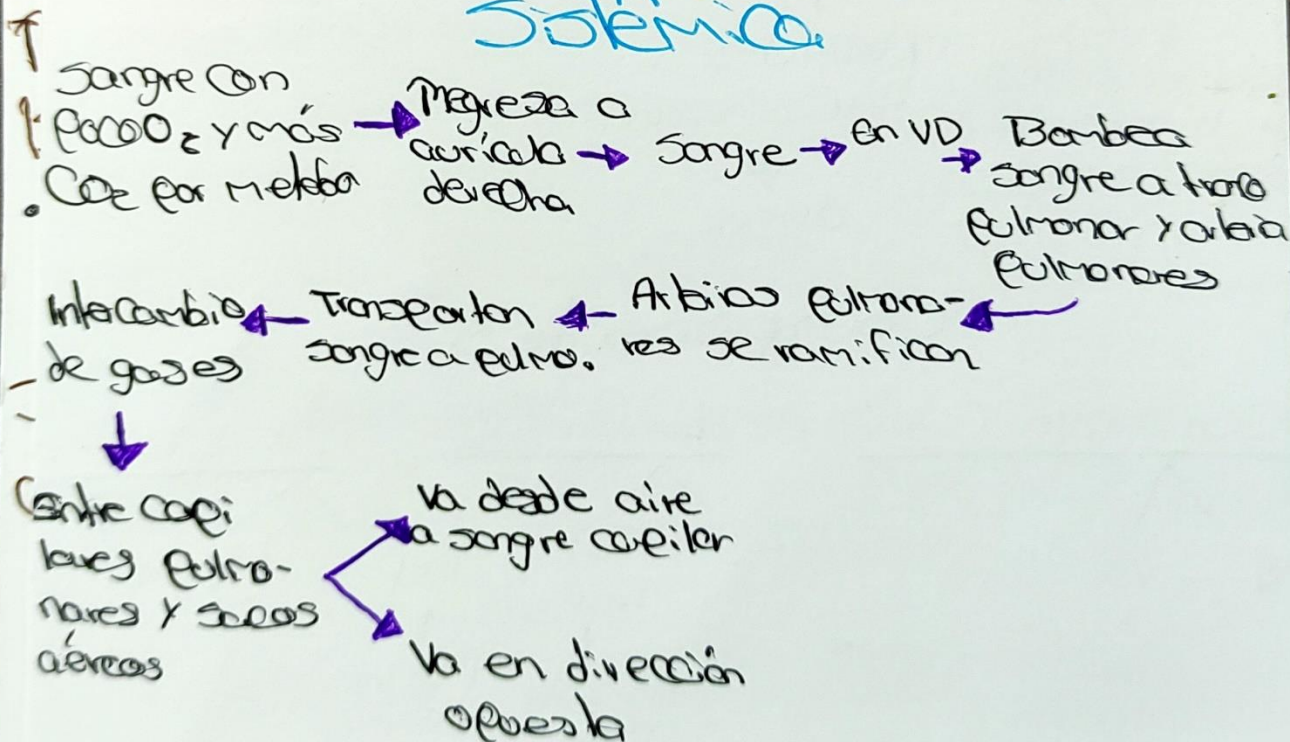 Sistémica
Sangre con
poco O₂ y más
CO₂ por metabo
Regresa a
aurícula
derecha
Sangre
en VD
Bombea
sangre a tronco
pulmonar y arteria
pulmonares
Arterias pulmona-
res se ramifican
Transportan
sangre a pulmo.
Intercambio
de gases
Entre capi
lares pulmo-
nares y sacos
aéreos
Va desde aire
a sangre capilar
Va en dirección
opuesta